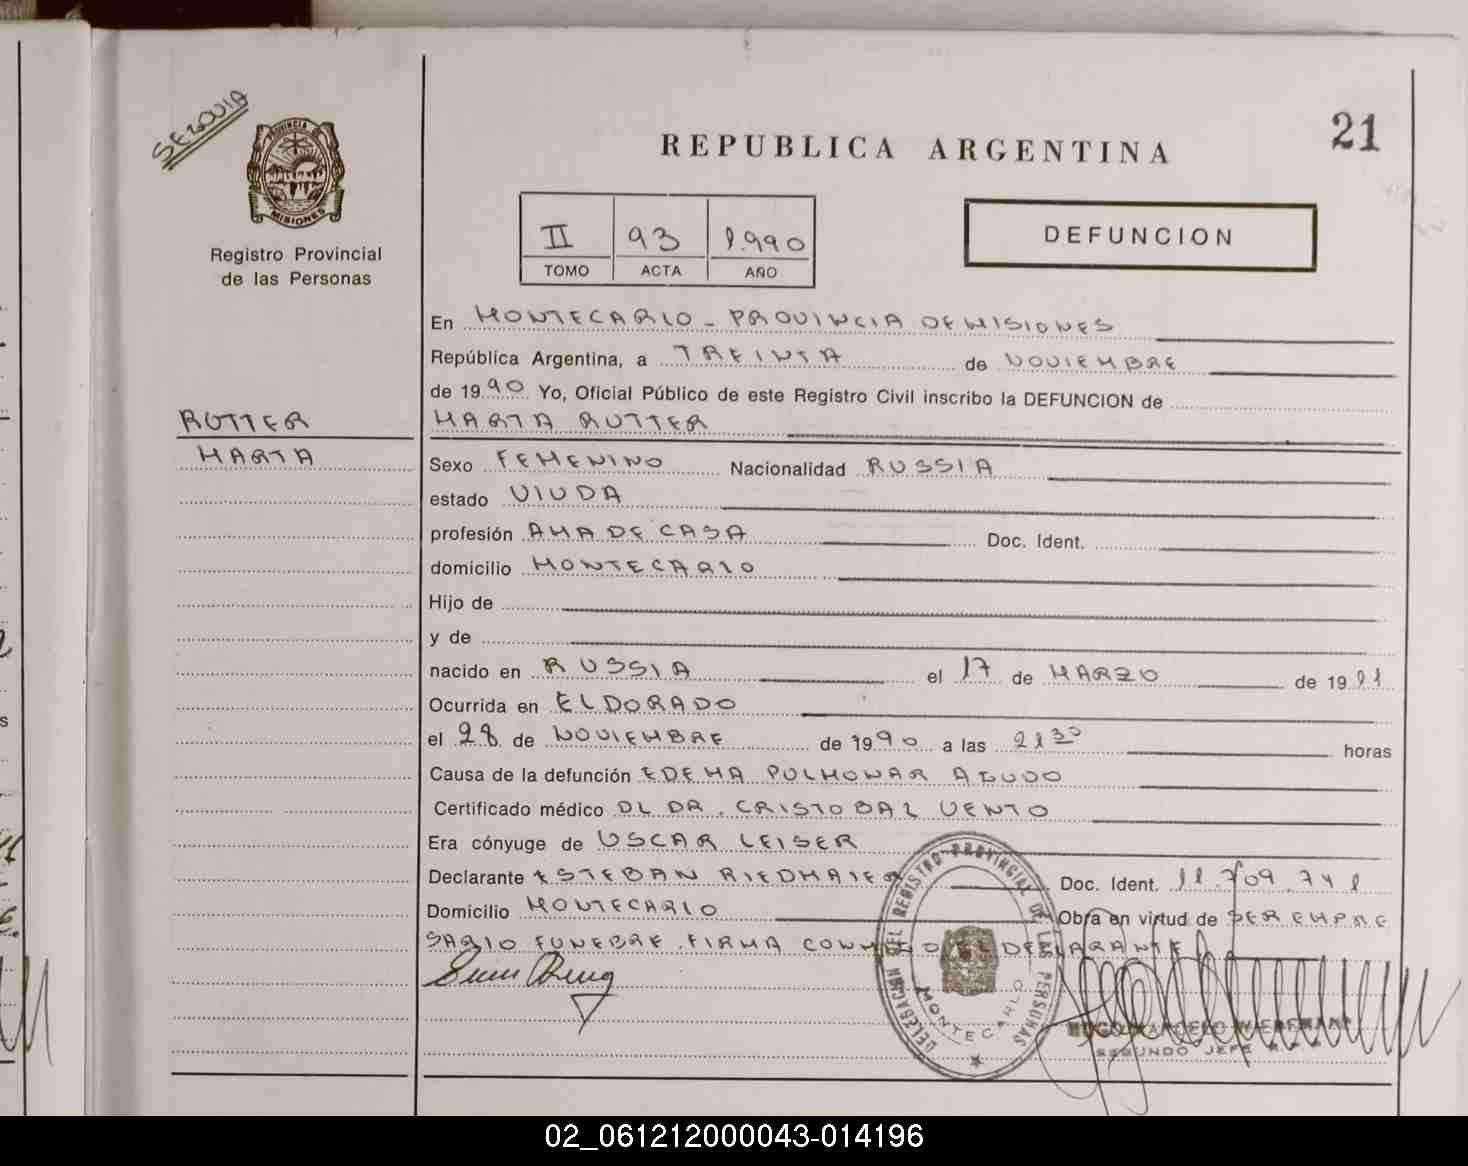 SEGOVIA
PROVINCIA DE
MISIONES
Registro Provincial
de las Personas
REPUBLICA ARGENTINA
21
II 93 1.990
TOMO ACTA AÑO
DEFUNCION
En MONTECARLO - PROVINCIA DE MISIONES
República Argentina, a TREINTA de NOVIEMBRE
de 1990 Yo, Oficial Público de este Registro Civil inscribo la DEFUNCION de
RUTTER
MARTA
MARTA RUTTER
Sexo FEMENINO Nacionalidad RUSSIA
estado VIUDA
profesión AMA DE CASA Doc. Ident.
domicilio MONTECARLO
Hijo de
y de
nacido en RUSSIA el 17 de MARZO de 1911
Ocurrida en ELDORADO
el 28 de NOVIEMBRE de 1990 a las 21 30 horas
Causa de la defunción EDEMA PULMONAR AGUDO
Certificado médico DL DR. CRISTOBAL VENTO
Era cónyuge de OSCAR LEISER
Declarante ESTEBAN RIEDMAIER Doc. Ident. 11.709.741
Domicilio MONTECARLO Obra en virtud de SER EMPRE
SARIO FUNEBRE. FIRMA CONMIGO EL DECLARANTE
DELEGACION DEL REGISTRO PROVINCIAL DE LAS PERSONAS
MONTECARLO
SEGUNDO JEFE
02_061212000043-014196